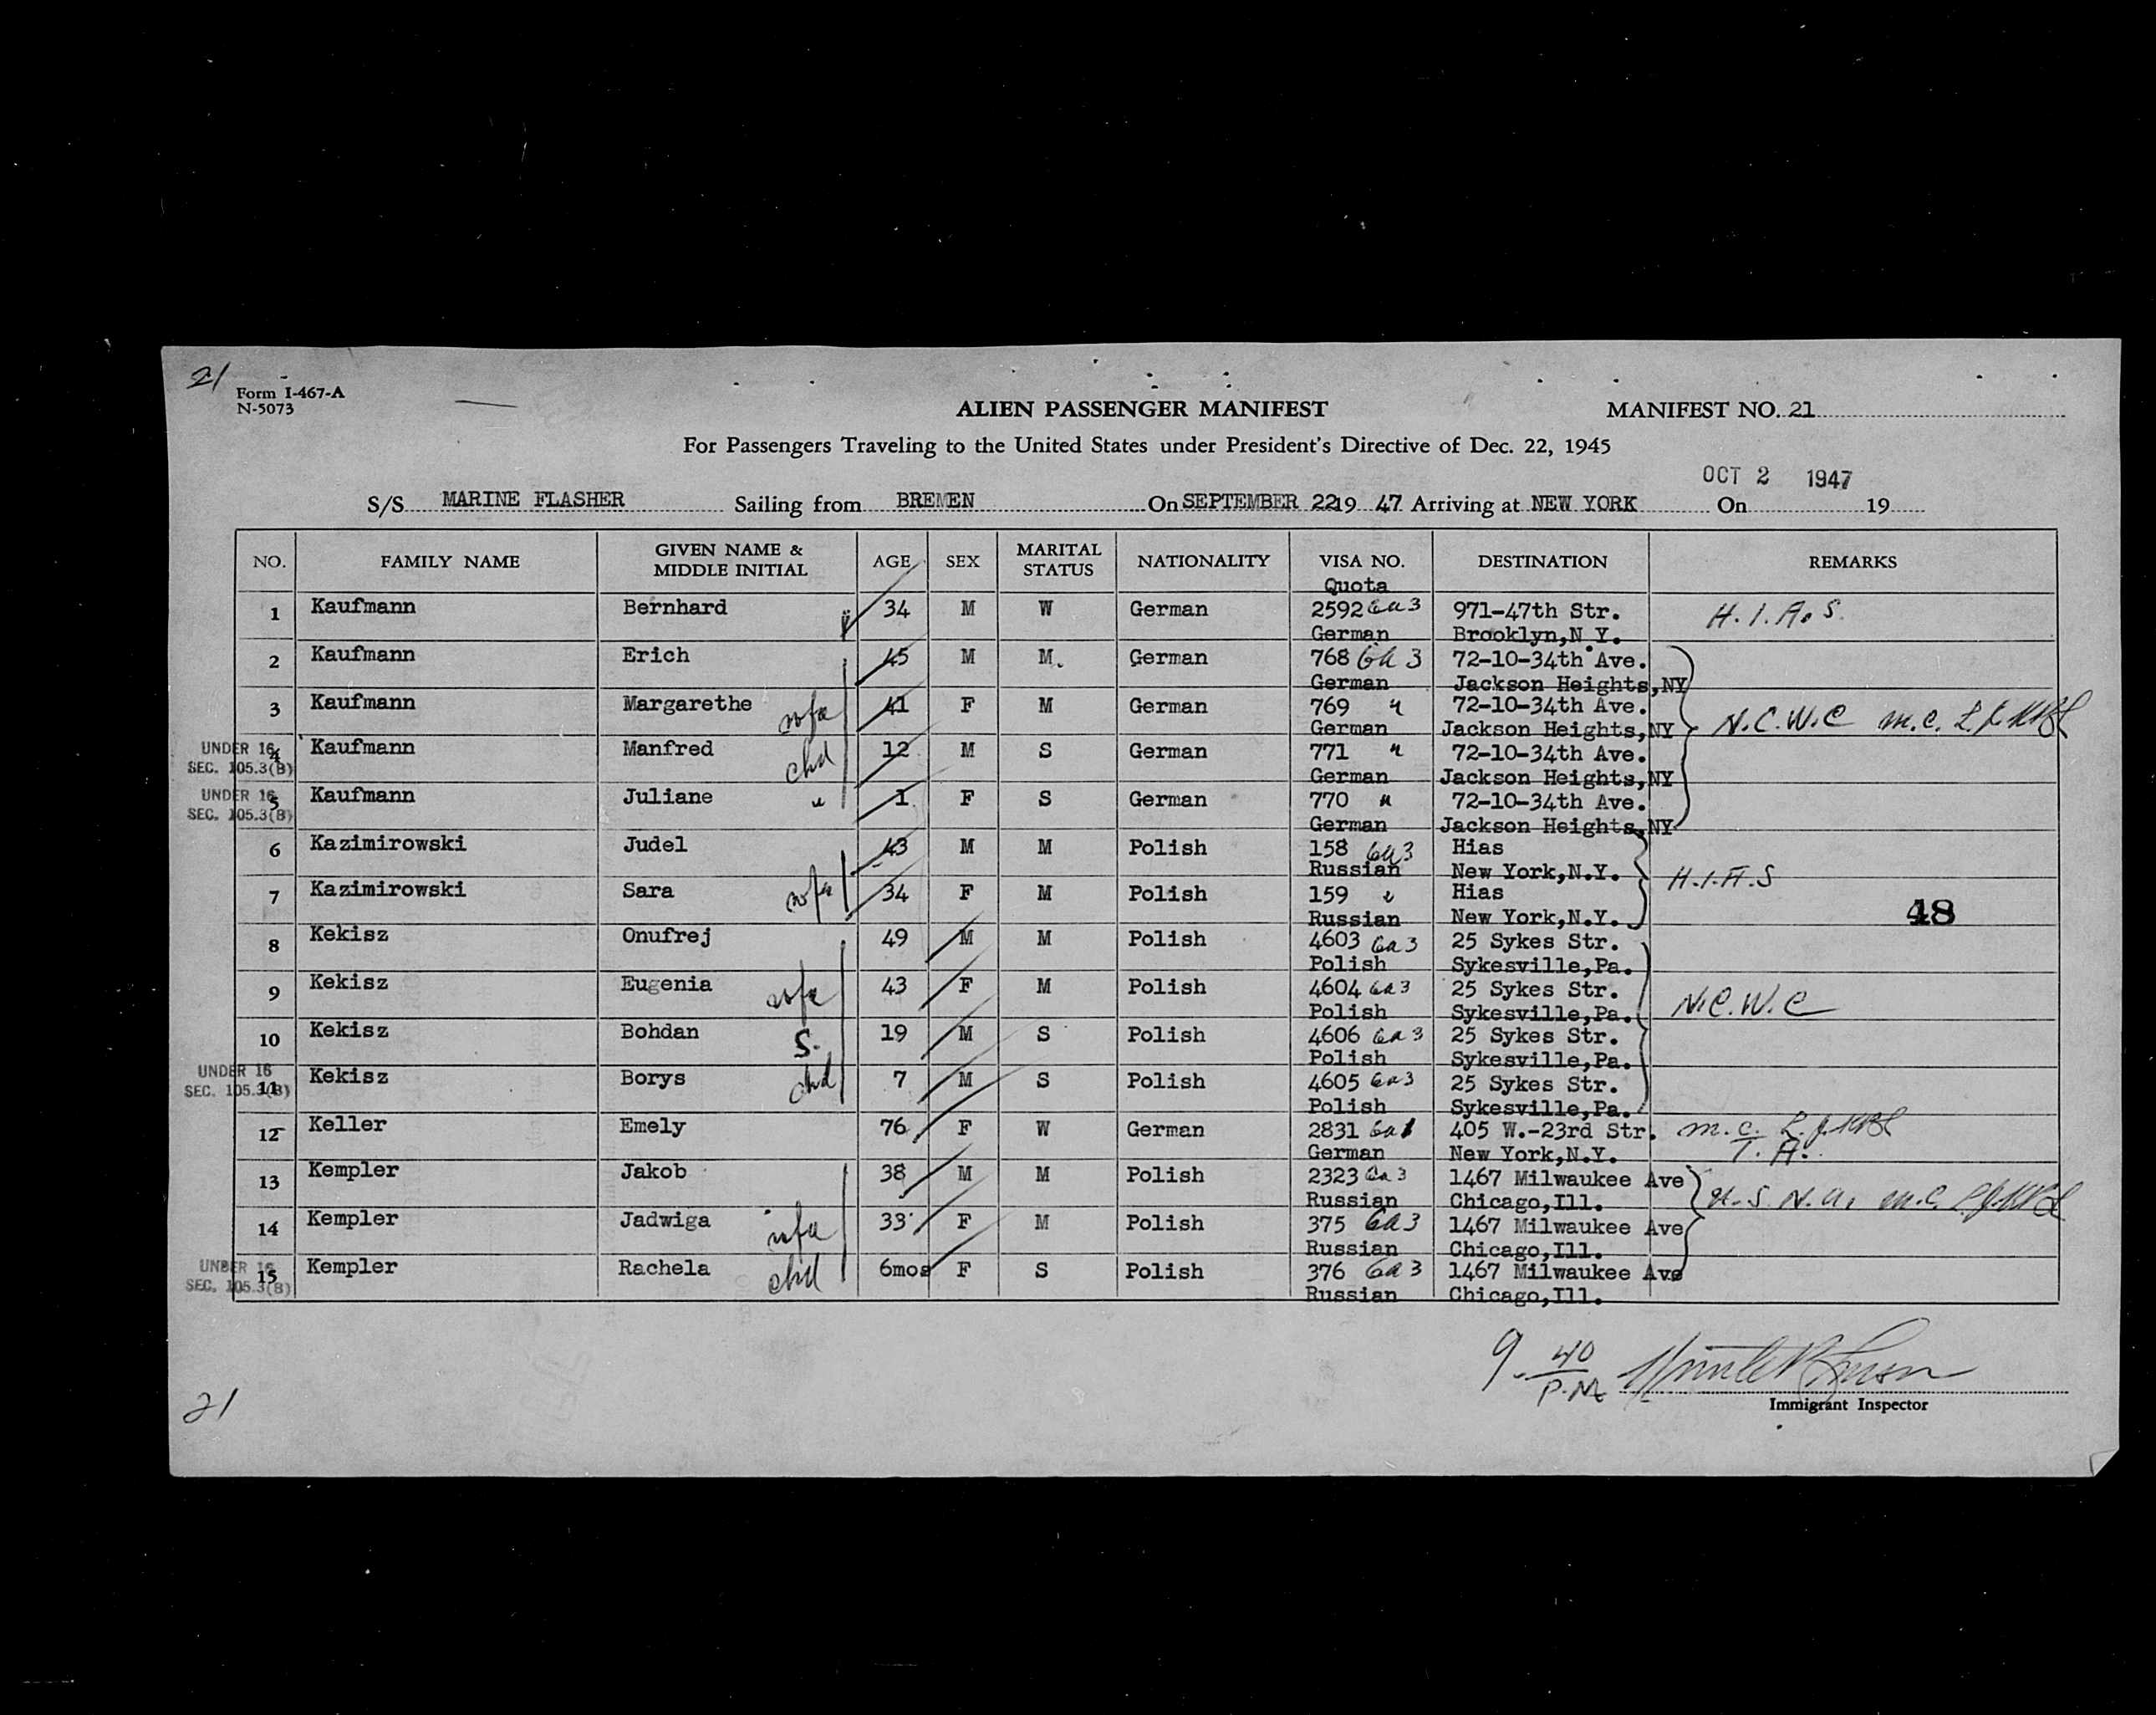 21
Form I-467-A
N-5073
ALIEN PASSENGER MANIFEST
MANIFEST NO. 21
For Passengers Traveling to the United States under President's Directive of Dec. 22, 1945
OCT 2 1947
S/S MARINE FLASHER Sailing from BREMEN On SEPTEMBER 2219 47 Arriving at NEW YORK On 19
NO. FAMILY NAME GIVEN NAME & MIDDLE INITIAL AGE SEX MARITAL STATUS NATIONALITY VISA NO. DESTINATION REMARKS
Quota
1 Kaufmann Bernhard 34 M W German 2592 6a3 971-47th Str. H.I.A.S.
German Brooklyn,N.Y.
2 Kaufmann Erich 45 M M. German 768 6a3 72-10-34th Ave.
German Jackson Heights,NY
3 Kaufmann Margarethe wfe 41 F M German 769 " 72-10-34th Ave. N.C.W.C m.c.
German Jackson Heights,NY
UNDER 16 4 Kaufmann Manfred chd 12 M S German 771 " 72-10-34th Ave.
SEC. 105.3(B) German Jackson Heights,NY
UNDER 16 5 Kaufmann Juliane " 1 F S German 770 " 72-10-34th Ave.
SEC. 105.3(B) German Jackson Heights,NY
6 Kazimirowski Judel 43 M M Polish 158 6a3 Hias
Russian New York,N.Y. H.I.A.S
7 Kazimirowski Sara wfe 34 F M Polish 159 " Hias
Russian New York,N.Y. 48
8 Kekisz Onufrej 49 M M Polish 4603 6a3 25 Sykes Str.
Polish Sykesville,Pa.
9 Kekisz Eugenia wfe 43 F M Polish 4604 6a3 25 Sykes Str. N.C.W.C
Polish Sykesville,Pa.
10 Kekisz Bohdan S. 19 M S Polish 4606 6a3 25 Sykes Str.
Polish Sykesville,Pa.
UNDER 16 11 Kekisz Borys chd 7 M S Polish 4605 6a3 25 Sykes Str.
SEC. 105.3(B) Polish Sykesville,Pa.
12 Keller Emely 76 F W German 2831 6a1 405 W.-23rd Str. m.c.
German New York,N.Y. T.A.
13 Kempler Jakob 38 M M Polish 2323 6a3 1467 Milwaukee Ave
Russian Chicago,Ill. U.S.N.A. m.c.
14 Kempler Jadwiga wfe 33 F M Polish 375 6a3 1467 Milwaukee Ave
Russian Chicago,Ill.
UNDER 16 15 Kempler Rachela chd 6mos F S Polish 376 6a3 1467 Milwaukee Ave
SEC. 105.3(B) Russian Chicago,Ill.
9.40 P.M.
Immigrant Inspector
21